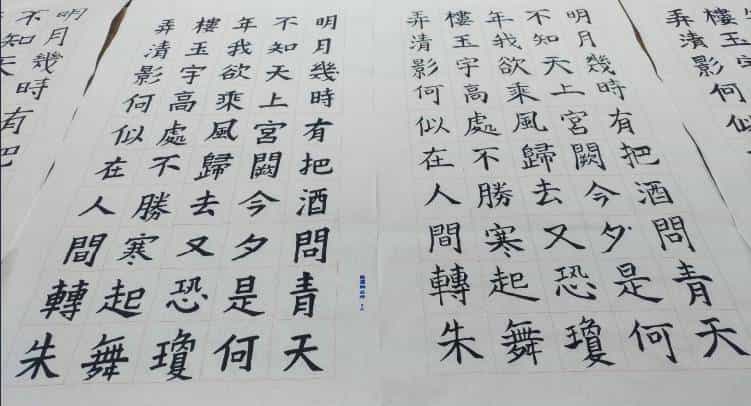 樓玉宇高
弄清影何似
明月幾時有把酒問青天
不知天上宮闕今夕是何
年我欲乘風歸去又恐瓊
樓玉宇高處不勝寒起舞
弄清影何似在人間轉朱
明月幾時有把酒問青天
不知天上宮闕今夕是何
年我欲乘風歸去又恐瓊
樓玉宇高處不勝寒起舞
弄清影何似在人間轉朱
明月幾時有把
不知天